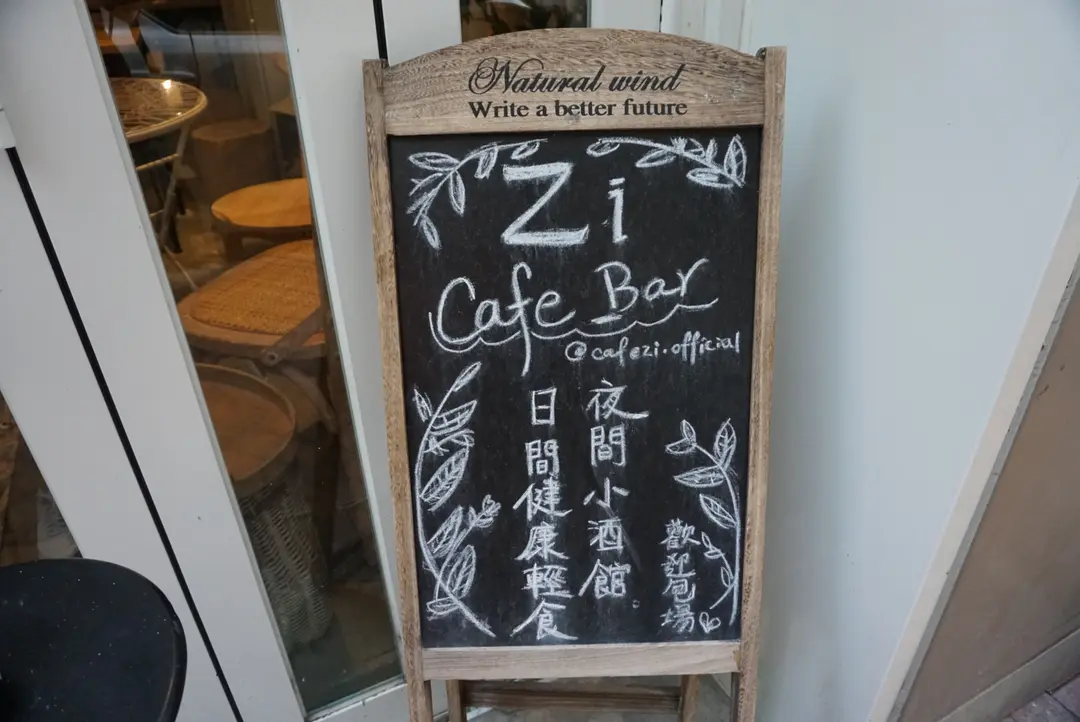 Natural wind
Write a better future
Zi
Cafe Bar
@cafezi.official
日間健康輕食
夜間小酒館
歡迎包場